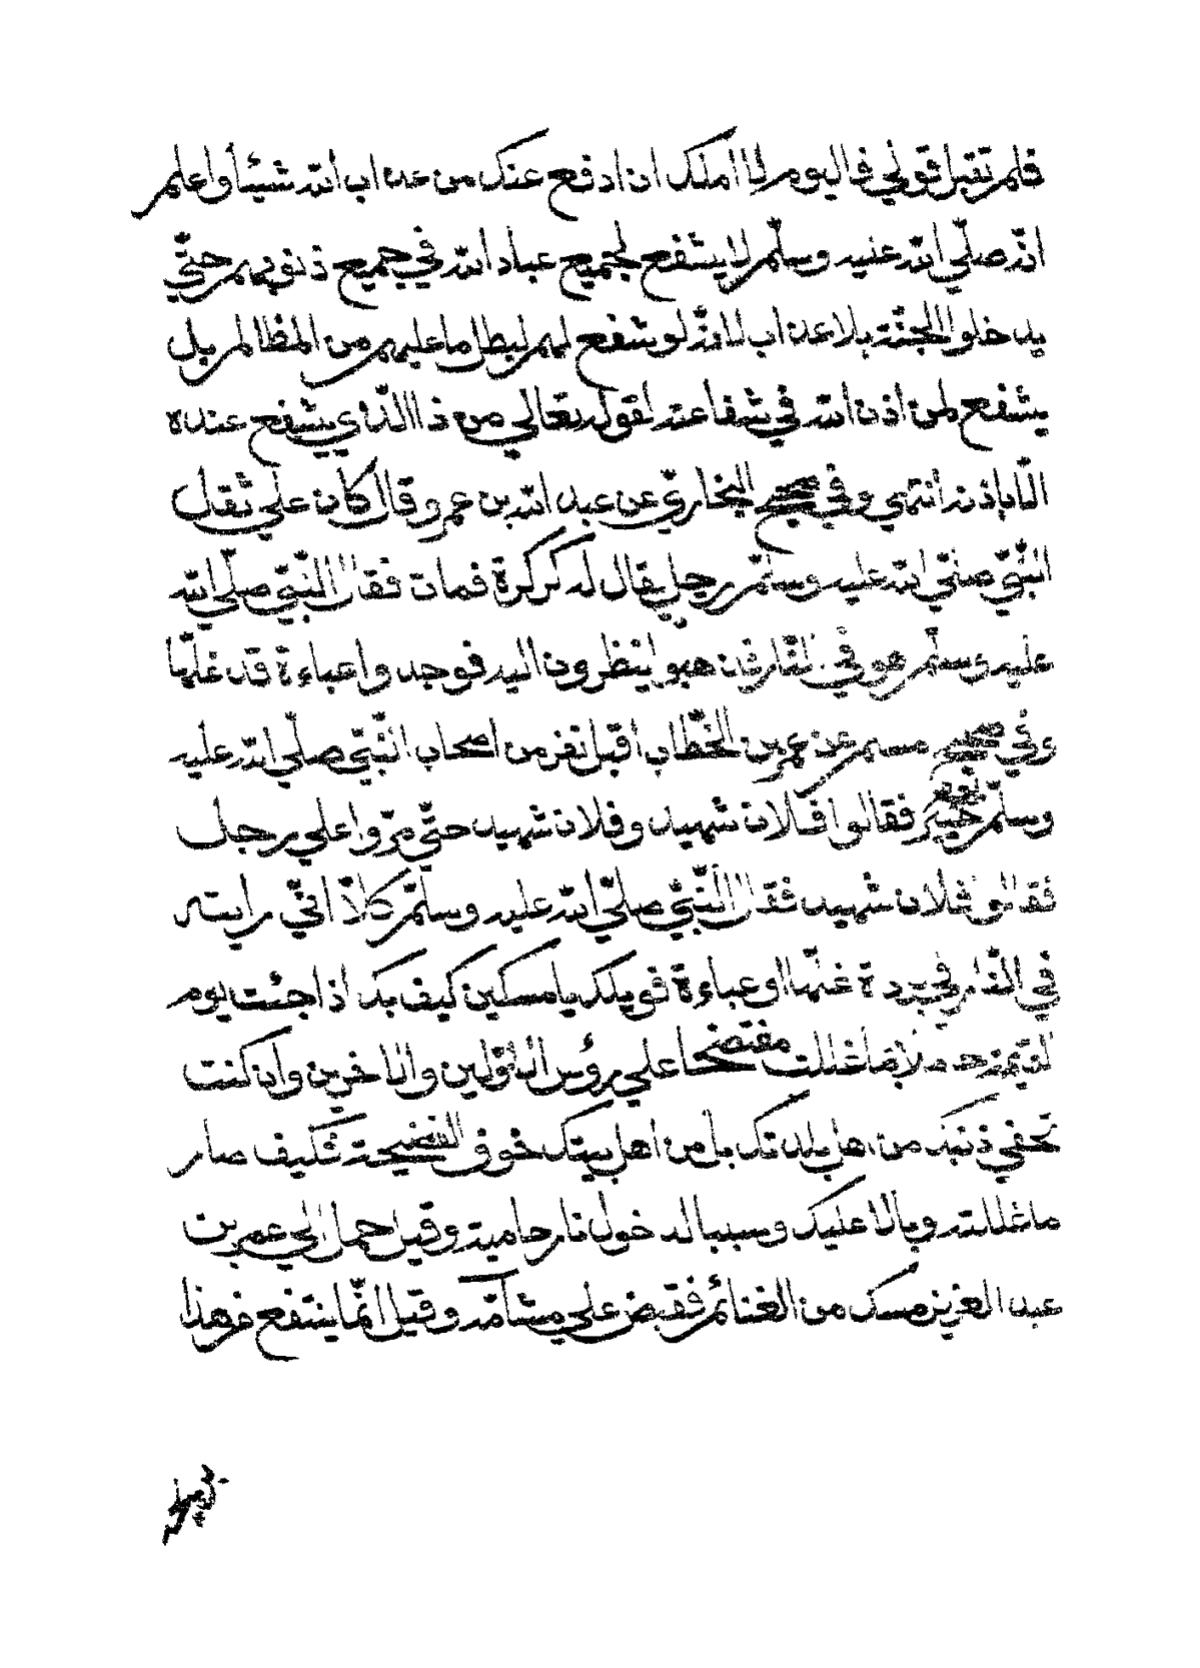 فلم تقبل قولي فاليوم لا املك ان ادفع عنك من عذاب الله شيئا واعلم
انه صلّي الله عليه وسلّم لا يشفع لجميع عباد الله في جميع ذنوبهم حتّي
يدخلوا الجنّة بلا عذاب لانّه لو شفع لهم ليبطل ما عليهم من المظالم بل
يشفع لمن اذن الله في شفاعته لقوله تعالي من ذا الّذي يشفع عنده
الّا باذنه انتهي وفي صحيح البخاريّ عن عبد الله بن عمرو قال كان علي ثقل
النّبيّ صلّي الله عليه وسلّم رجل يقال له كركرة فمات فقال النّبيّ صلّي الله
عليه وسلّم هو في النّار فذهبوا ينظرون اليه فوجدوا عباءة قد غلّها
وفي صحيح مسلم عن عمر بن الخطّاب اقبل نفر من اصحاب النّبيّ صلّي الله عليه
وسلّم فقالوا فلان شهيد وفلان شهيد حتّي مرّوا علي رجل
فقالوا فلان شهيد فقال النّبيّ صلّي الله عليه وسلّم كلّا انّي رايته
في النّار في بردة غلّها او عباءة فويلك يا مسكين كيف بك اذا جئت يوم
القيمة حاملا بما غللت مفتضحا علي رؤس الاوّلين والاخرين وان كنت
تخفي ذنبك من اهل بلدتك بل من اهل بيتك خوف الفضيحة فكيف صار
ما غللته وبالا عليك وسببا لدخول نار حامية وقيل حمل الي عمر بن
عبد العزيز مسك من الغنائم فقبض علي مشامّه وقيل انّما ينتفع من هذا